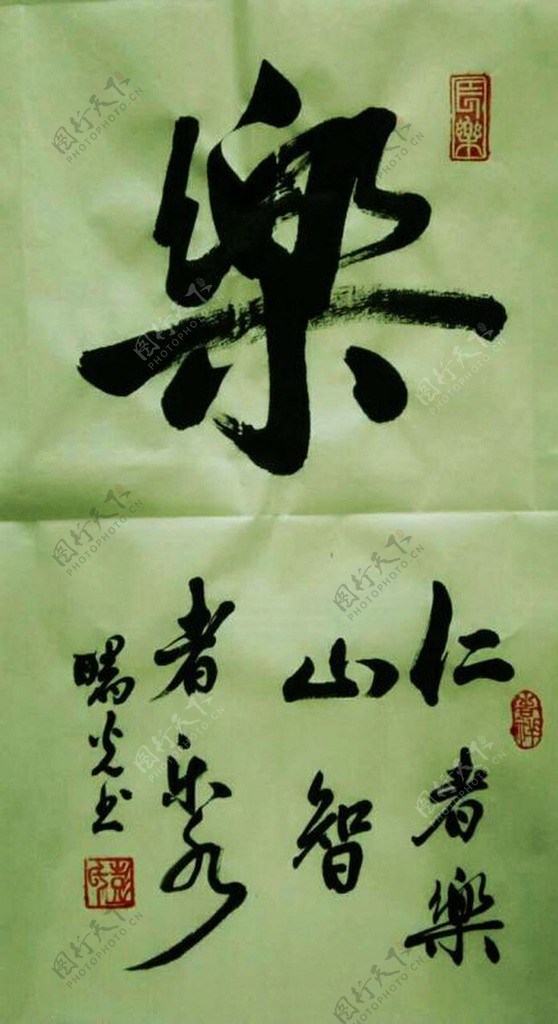 樂
長樂
仁者樂
山智
者乐水
曙光书
图行天下
PHOTOPHOTO.CN